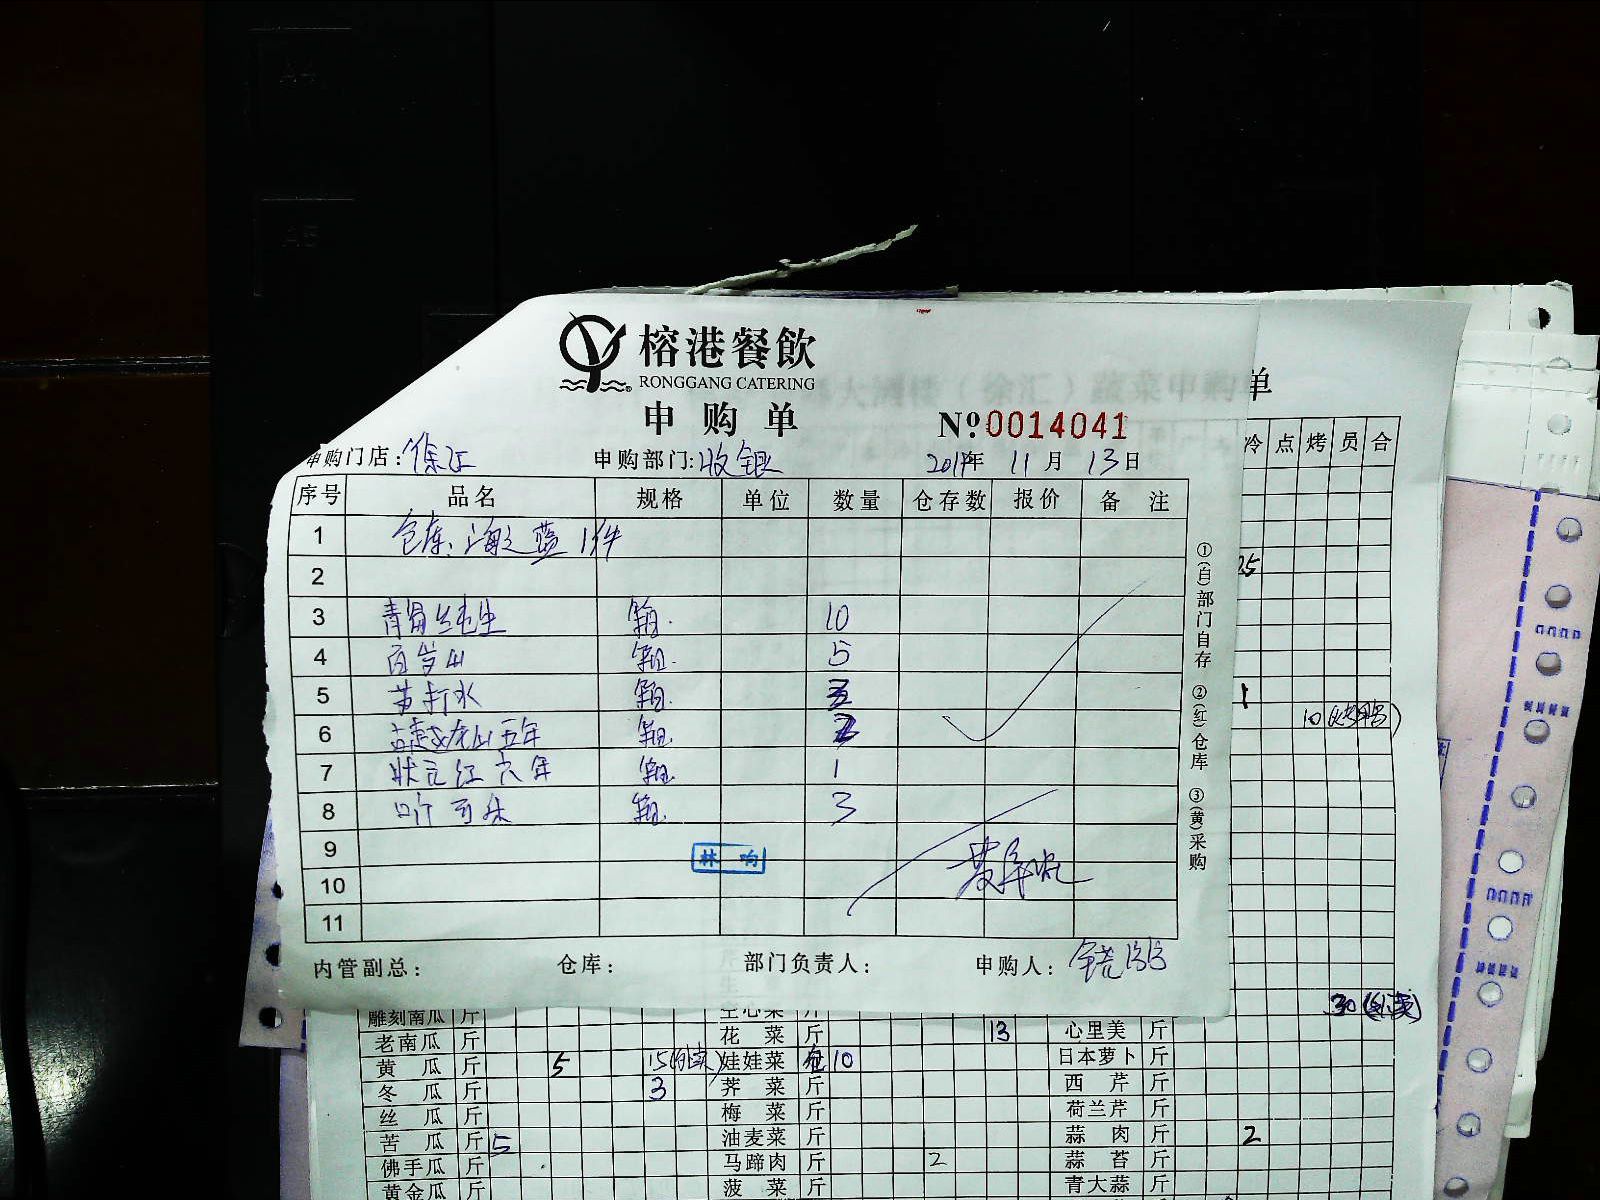 A4
A5
榕港餐飲
RONGGANG CATERING
申购单
№ 0014041
申购门店: 徐汇 申购部门: 收银 2017年 11月 13日
序号 品名 规格 单位 数量 仓存数 报价 备注
1 仓库: 海之蓝 1件
2
3 青岛纯生 箱. 10
4 百岁山 箱. 5
5 苏打水 箱. 3
6 古越龙山五年 箱. 2
7 状元红六年 箱. 1
8 听可乐 箱. 3
9
林响
10
11
内管副总: 仓库: 部门负责人: 申购人:
①(白)部门自存 ②(红)仓库 ③(黄)采购
大酒楼（徐汇）蔬菜申购单
冷 点 烤 员 合
25
1
10
30
雕刻南瓜 斤 空心菜 斤
老南瓜 斤 花菜 斤 13 心里美 斤
黄瓜 斤 5 15 娃娃菜 包 10 日本萝卜 斤
冬瓜 斤 3 荠菜 斤 西芹 斤
丝瓜 斤 梅菜 斤 荷兰芹 斤
苦瓜 斤 5 油麦菜 斤 蒜肉 斤 2
佛手瓜 斤 马蹄肉 斤 2 蒜苔 斤
黄金瓜 斤 菠菜 斤 青大蒜 斤